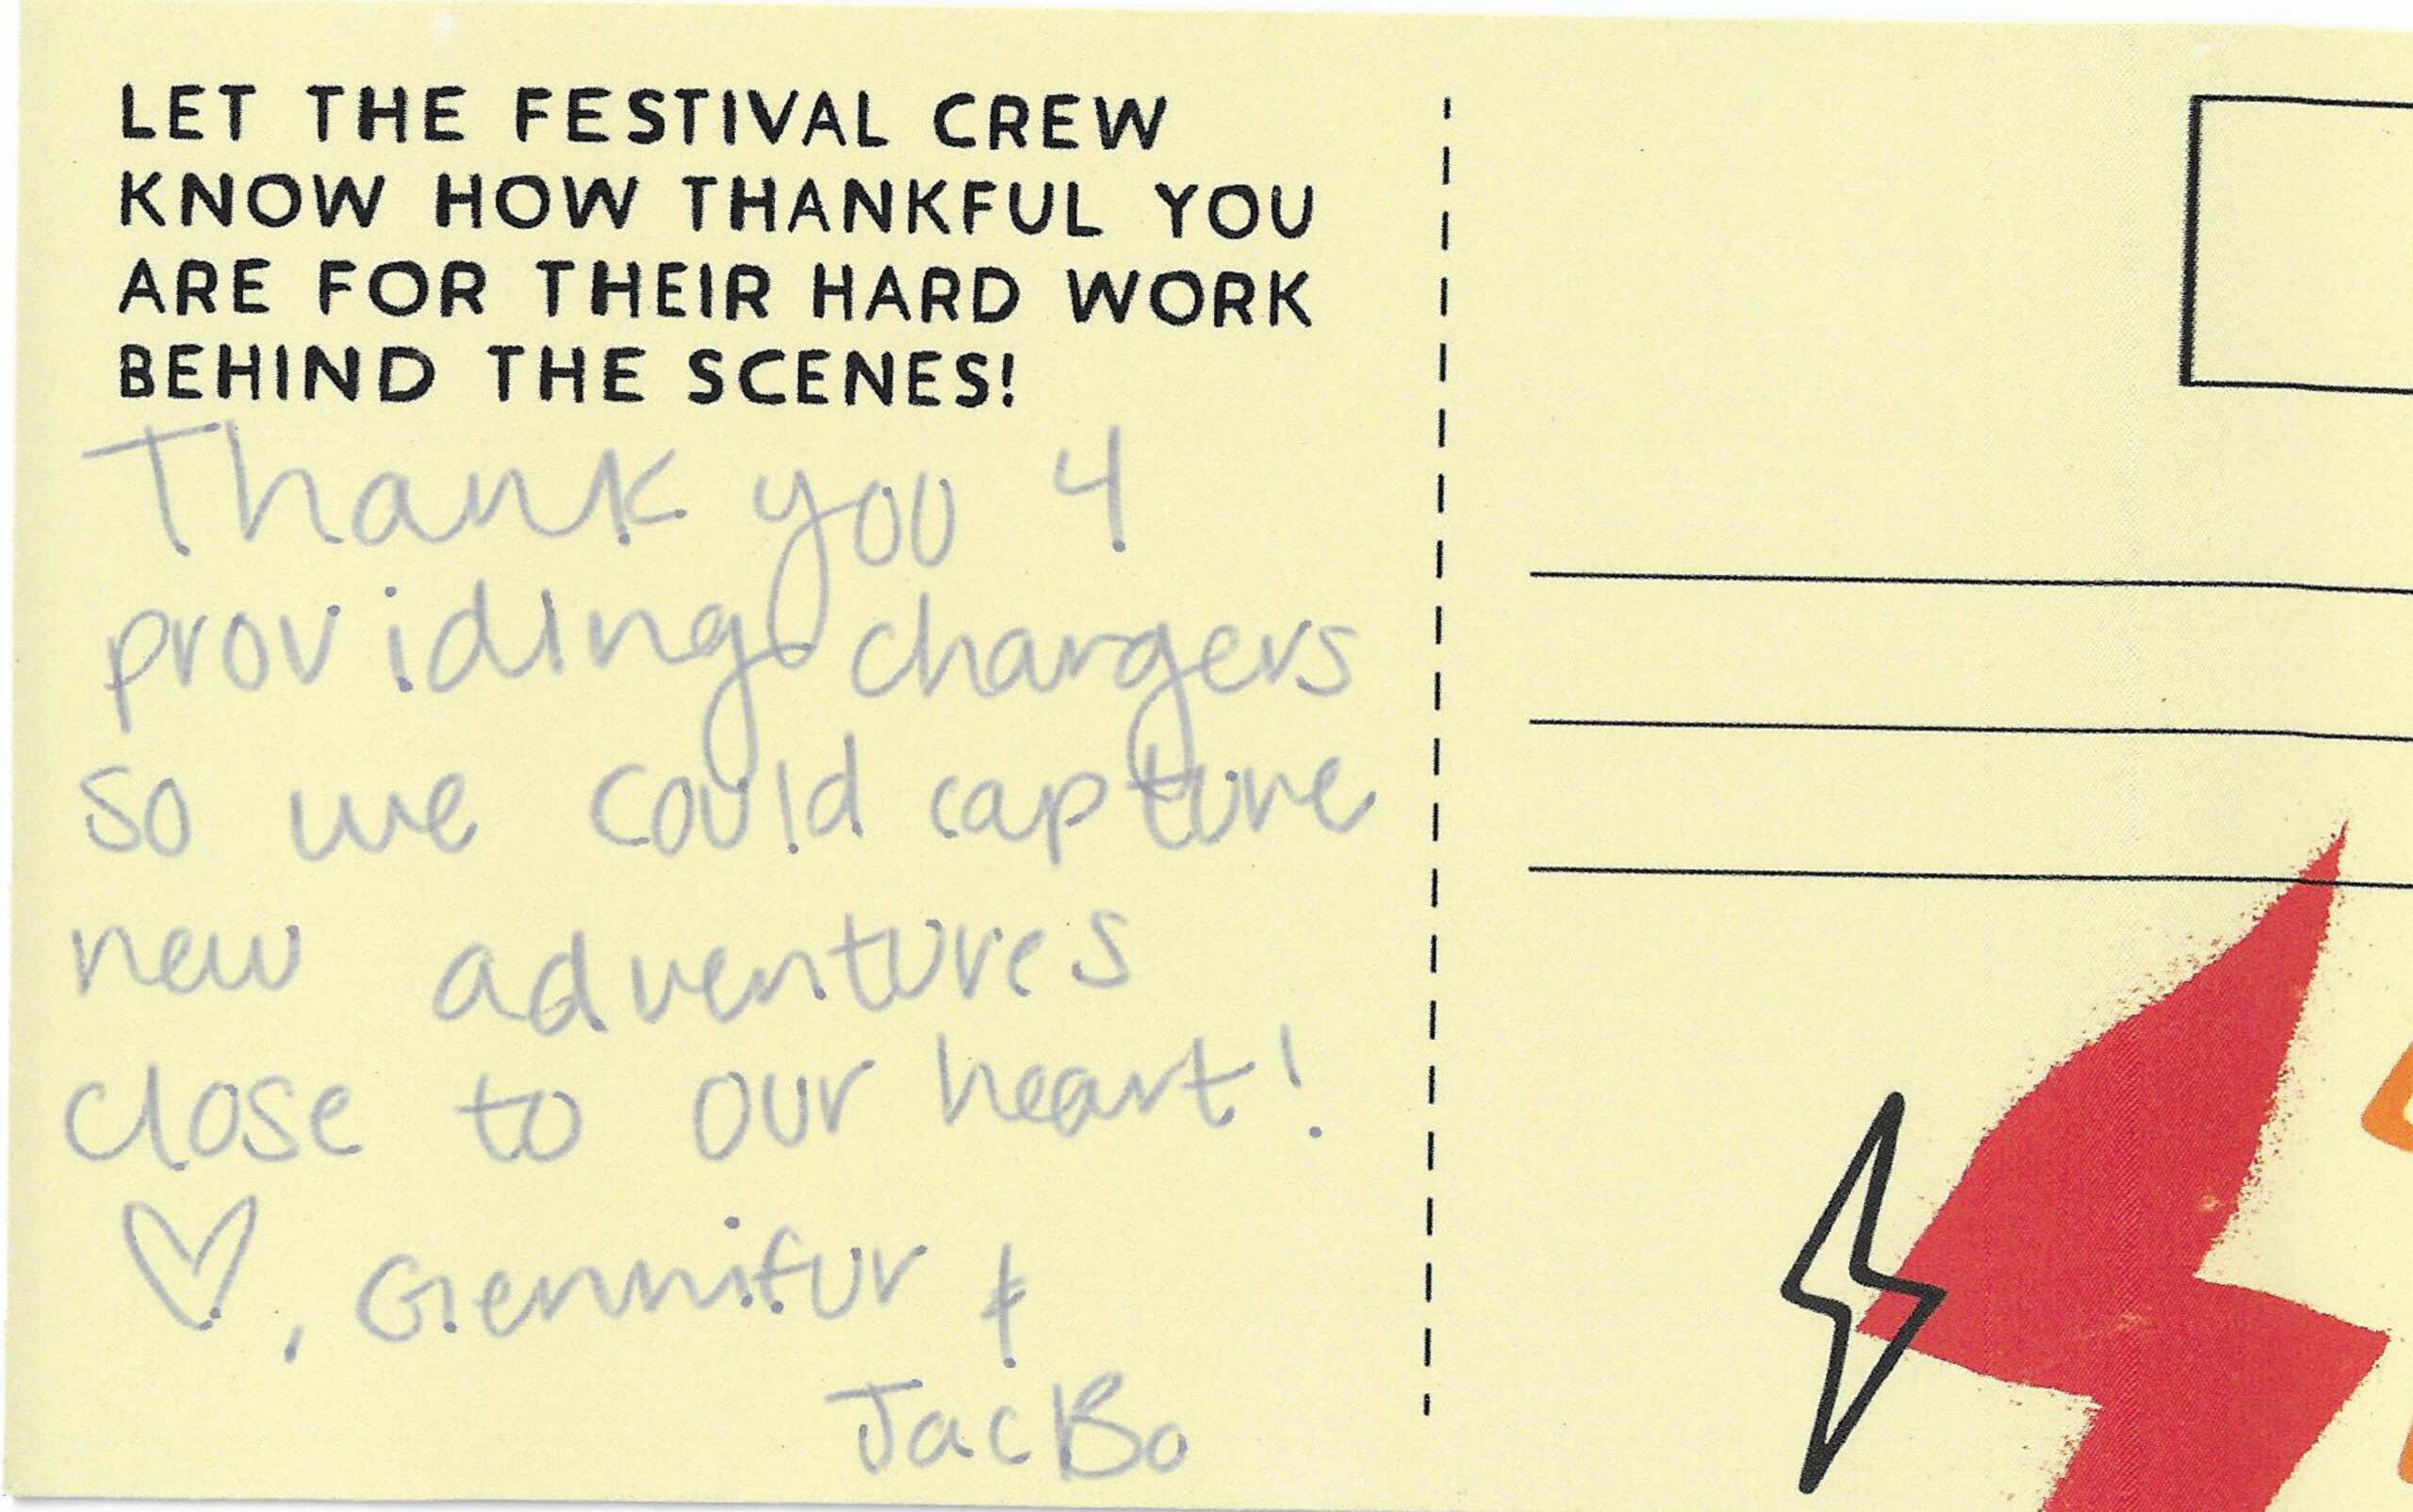 LET THE FESTIVAL CREW
KNOW HOW THANKFUL YOU
ARE FOR THEIR HARD WORK
BEHIND THE SCENES!
Thank you 4
providing chargers
so we could capture
new adventures
close to our heart!
♡, Gennifur &
JacBo